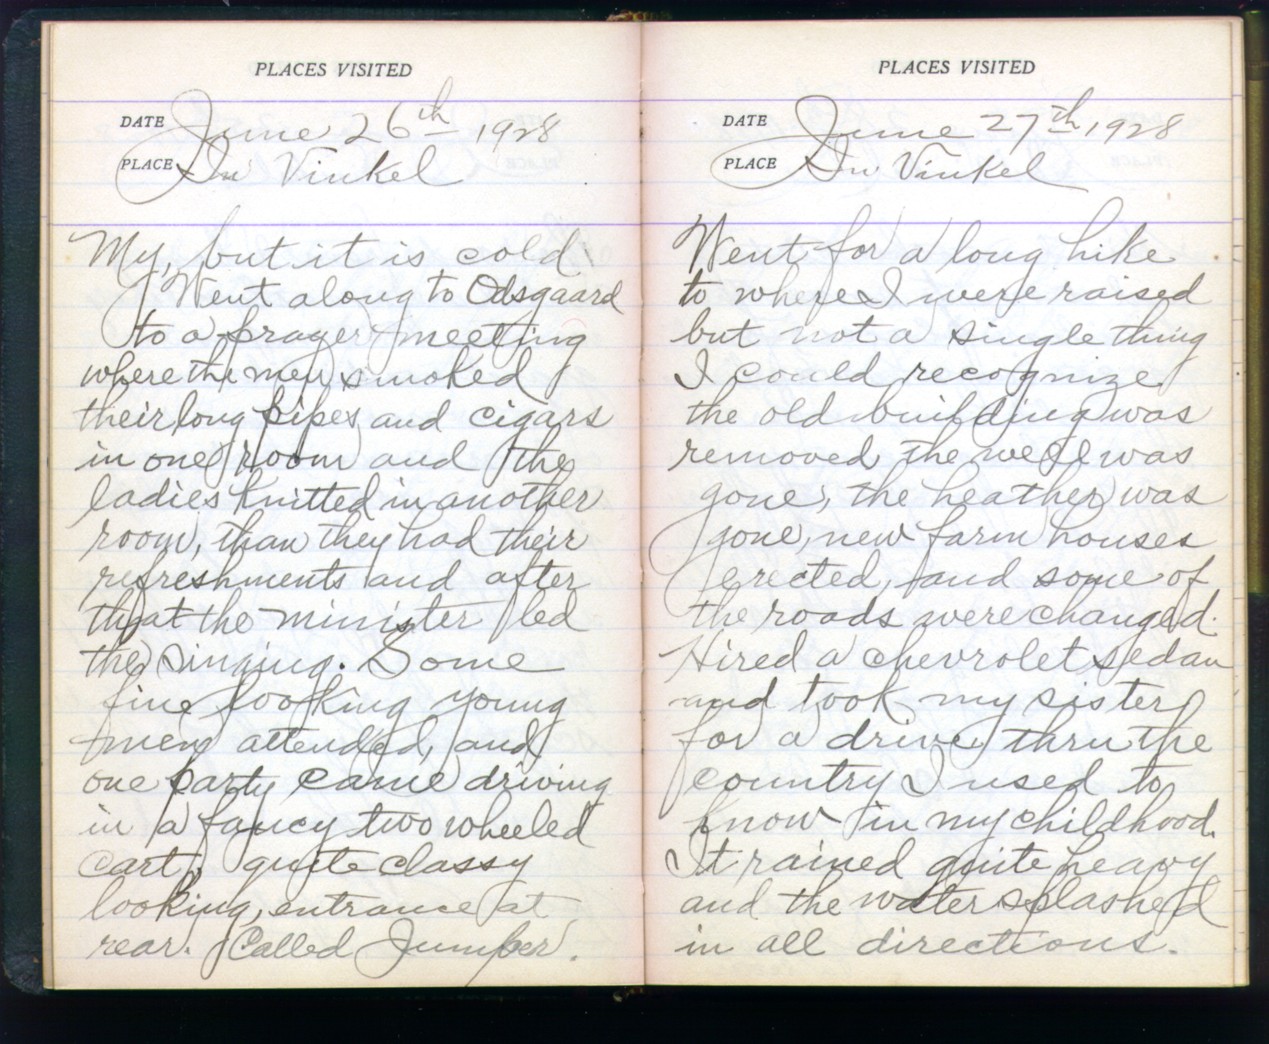 PLACES VISITED
DATE June 26th 1928
PLACE In Vinkel
My, but it is cold
Went along to Odsgaard
to a prayer meeting
where the men smoked
their long pipes and cigars
in one room and the
ladies knitted in another
room, than they had their
refreshments and after
that the minister led
the singing. Some
fine looking young
men attended, and
one party came driving
in a fancy two wheeled
cart, quite classy
looking, entrance at
rear. Called Jumper.
PLACES VISITED
DATE June 27th, 1928
PLACE In Vinkel
Went for a long hike
to where I were raised
but not a single thing
I could recognize
the old building was
removed, the well was
gone, the heather was
gone, new farm houses
erected, and some of
the roads were changed.
Hired a chevrolet sedan
and took my sister
for a drive thru the
country I used to
know in my childhood.
It rained quite heavy
and the water splashed
in all directions.